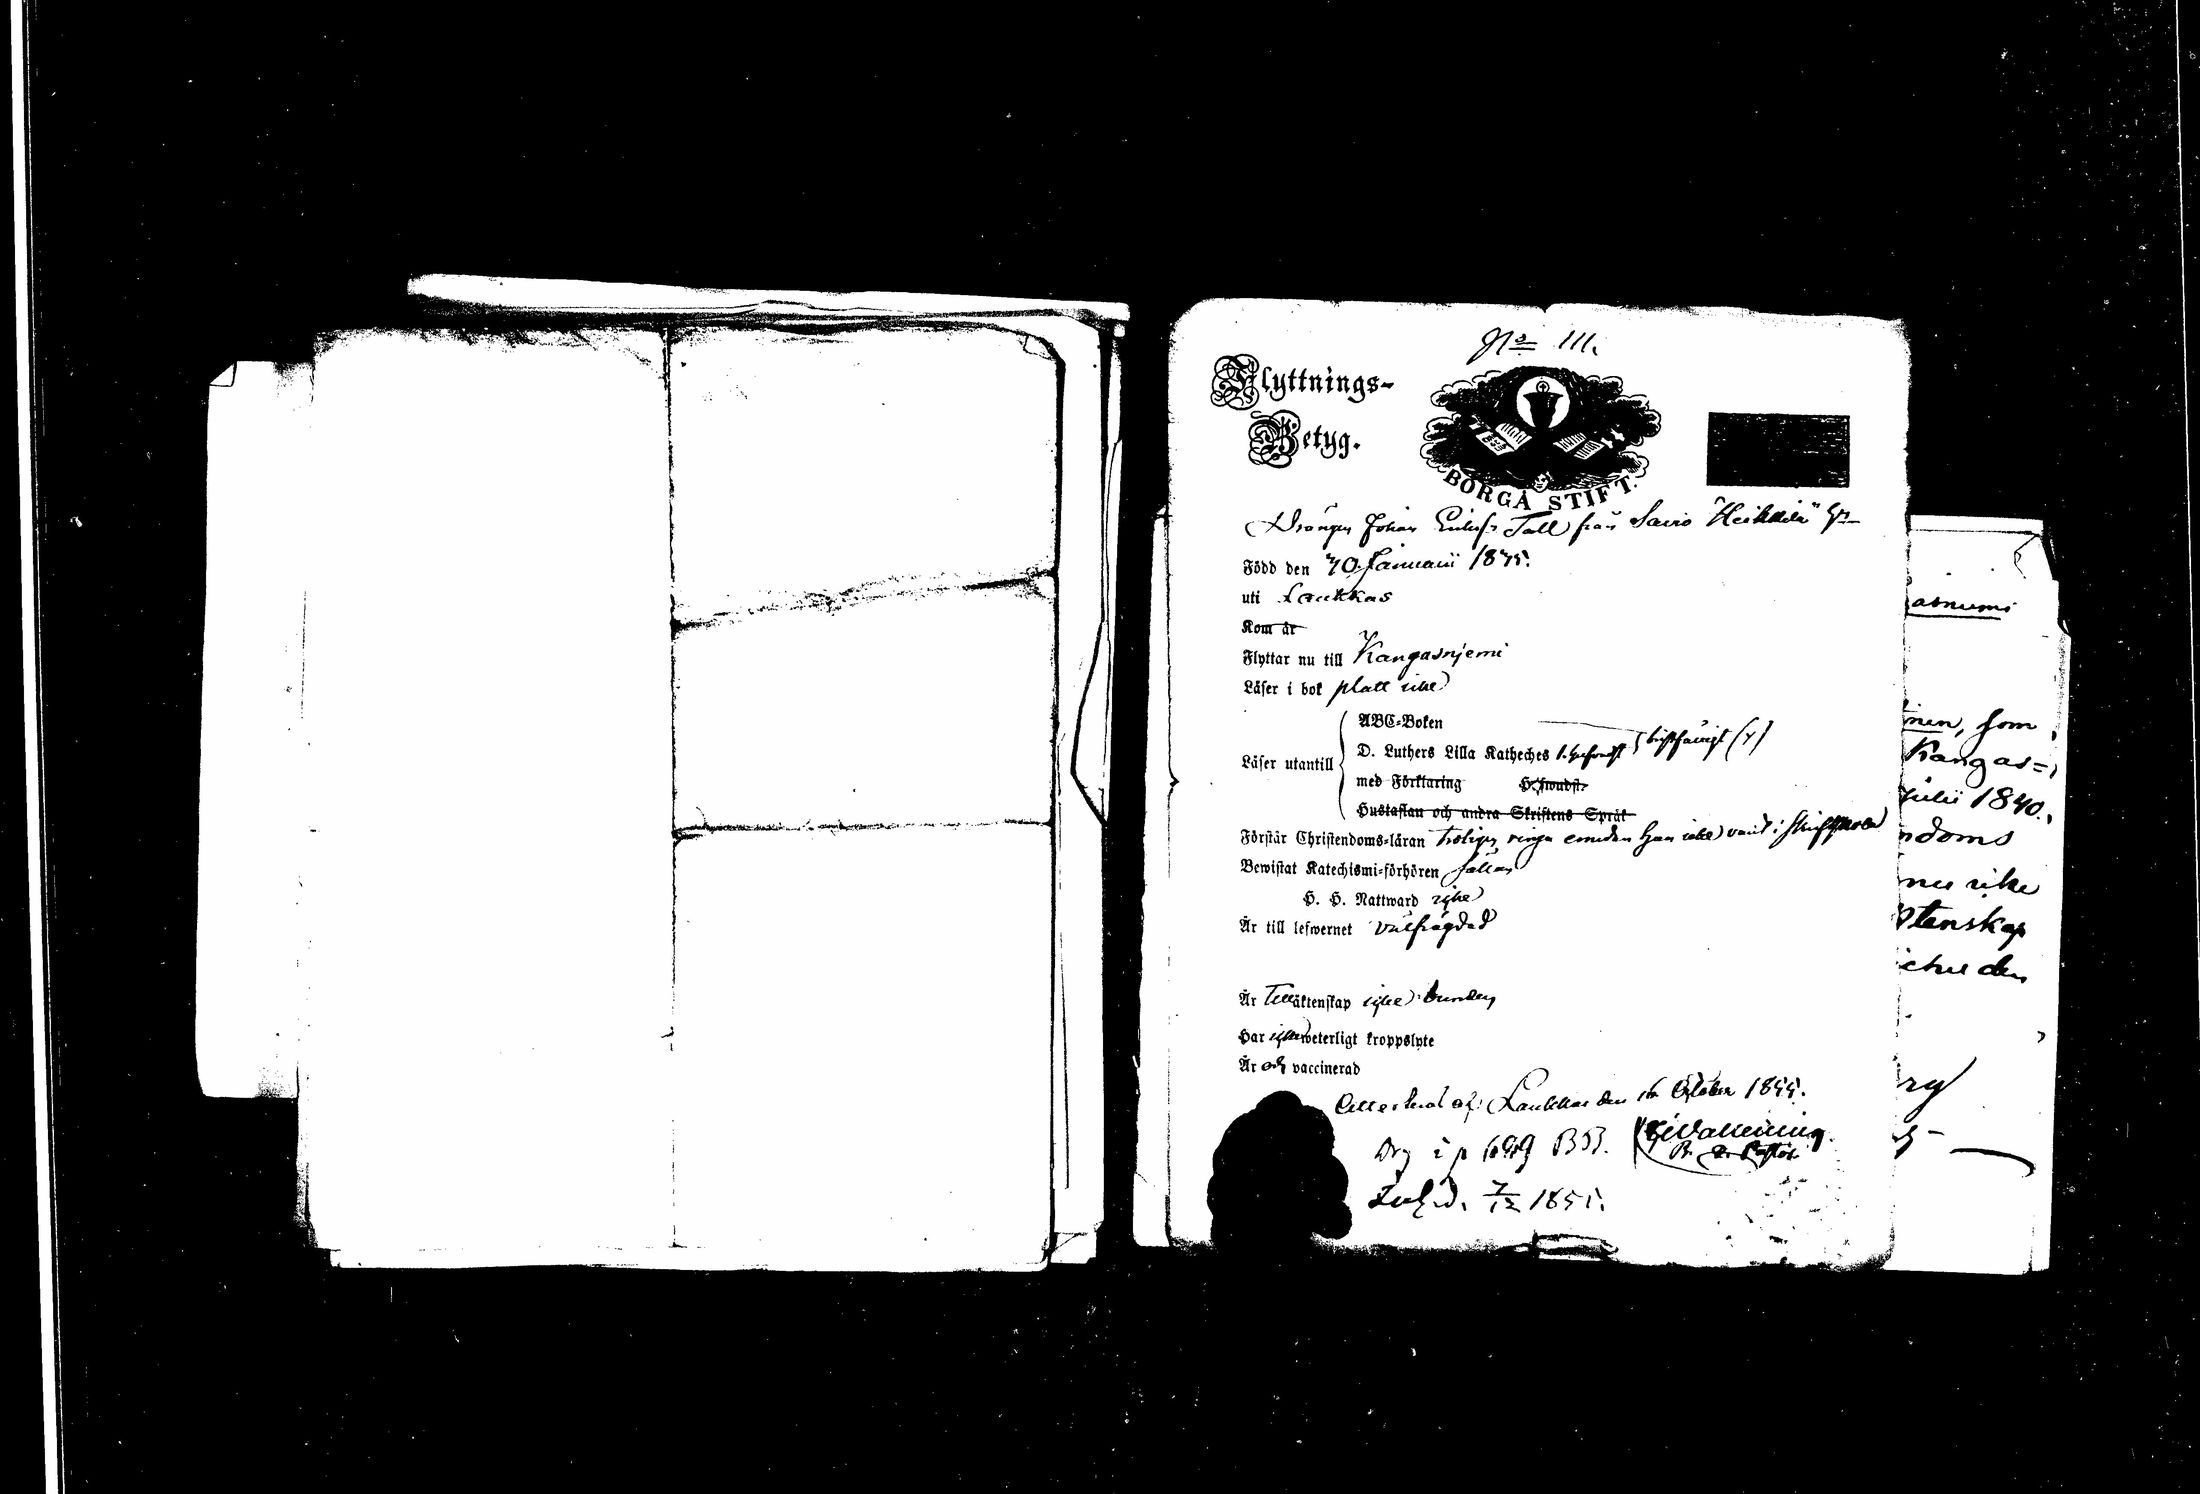 No 111.
Flyttnings-
Betyg.
BORGÅ STIFT.
Drängen Johan Tall från Savio "Heikkilä"
Född den Januarii
uti Laukkas
Kom år
Flyttar nu till Kangasnjemi
Läser i bok platt icke
Läser utantill
ABC-Boken
D. Luthers Lilla Katheches
med Förklaring H. Hwudst.
Hustaflan och andra Skriftens Språk
Förstår Christendoms-läran troligen ringa emedan han icke varit i Skriftskola
Bewistat Katechismi-förhören sällan
H. H. Nattward icke
Är till lefwernet välfrägdad
Är till äktenskap icke bunden
Har icke weterligt kroppslyte
Är och vaccinerad
Attesteras af Laukkas den October 1855.
i p BB.
7/12 1855.
asnumi
nen, som
Kangas=
Julii 1840.
ndoms
nu icke
tenskap
den